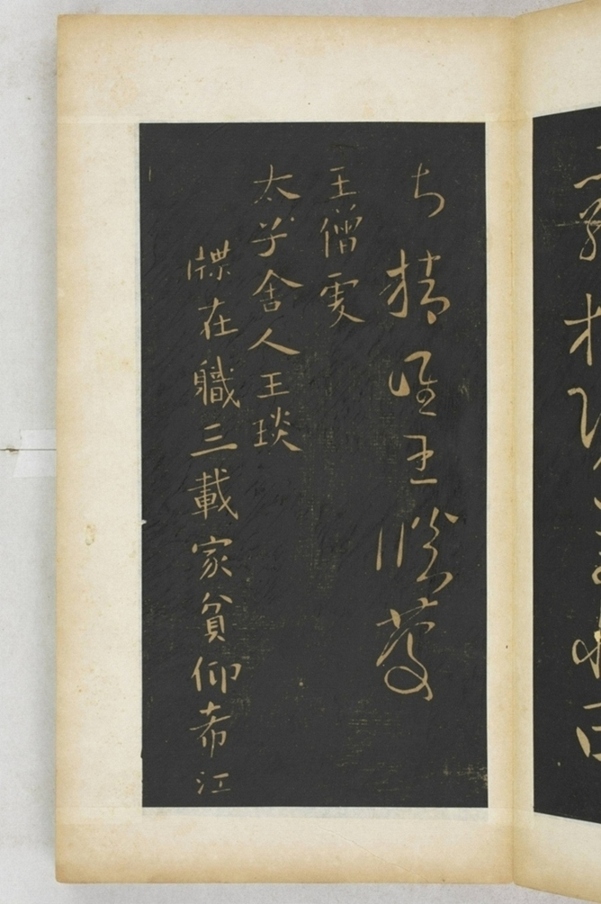 甚精唯王臨慶
王僧虔
太子舍人王琰
牒在職三載家貧仰希江